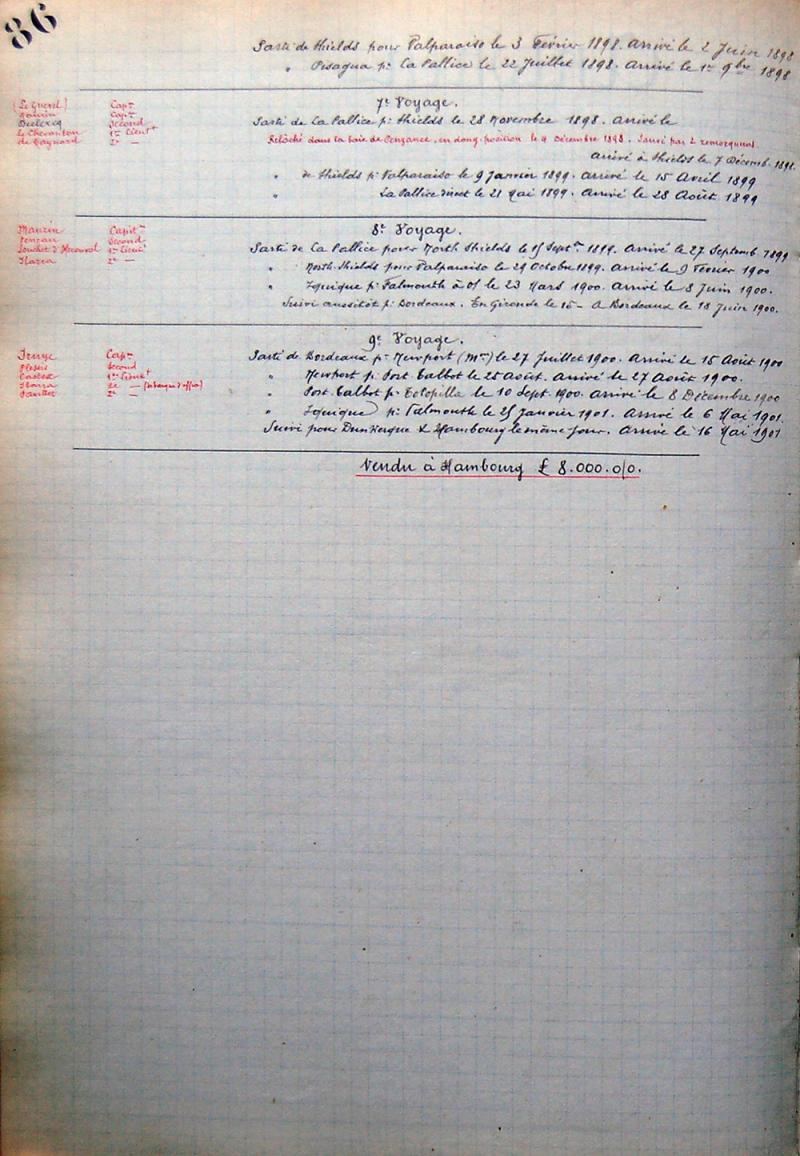 86
Sorti de Shields pour Valparaiso le 3 Février 1898. Arrivé le 2 Juin 1898
" Pisagua pr La Pallice le 22 Juillet 1898. Arrivé le 1er 9bre 1898
7e Voyage.
(Le Guevel) Capne
Maurin Capne
Second
Sorti de La Pallice pr Shields le 28 Novembre 1898. Arrivé le
Le Chevanton 1er Lieutt
Relâché dans la baie de Penzance, en dang. position le 4 Décembre 1898. Sauvé par 2 remorqueurs
de Gaynard 2e —
Arrivé à Shields le 7 Décemb. 1898.
" de Shields pr Valparaiso le 9 Janvier 1899. Arrivé le 15 Avril 1899
" La Pallice direct le 21 Mai 1899. Arrivé le 28 Août 1899
8e Voyage.
Maurin Capitne
Second
Sorti de La Pallice pour North Shields le 15 Septre 1899. Arrivé le 27 Septemb 1899
1er Lieutt
2e —
" North Shields pour Valparaiso le 29 Octobre 1899. Arrivé le 9 Février 1900
" Iquique pr Falmouth à O/ le 23 Mars 1900. Arrivé le 8 Juin 1900.
Suivi aussitôt pr Bordeaux. En Gironde le 15 - A Bordeaux le 18 Juin 1900.
9e Voyage.
Capne
Sorti de Bordeaux pr Newport (Mon) le 27 Juillet 1900. Arrivé le 15 Août 1900
Second
Castex 1er Lieutt
" Newport pr Port Talbot le 25 Août. Arrivé le 27 Août 1900.
2e — (débarqué d'office)
2e —
" Port Talbot pr Tocopilla le 10 Sept 1900. Arrivé le 8 Décembre 1900
" Iquique pr Falmouth le 25 Janvier 1901. Arrivé le 6 Mai 1901.
Suivi pour Dunkerque & Hambourg le même jour. Arrivé le 16 Mai 1901
Vendu à Hambourg £ 8.000.0/0.